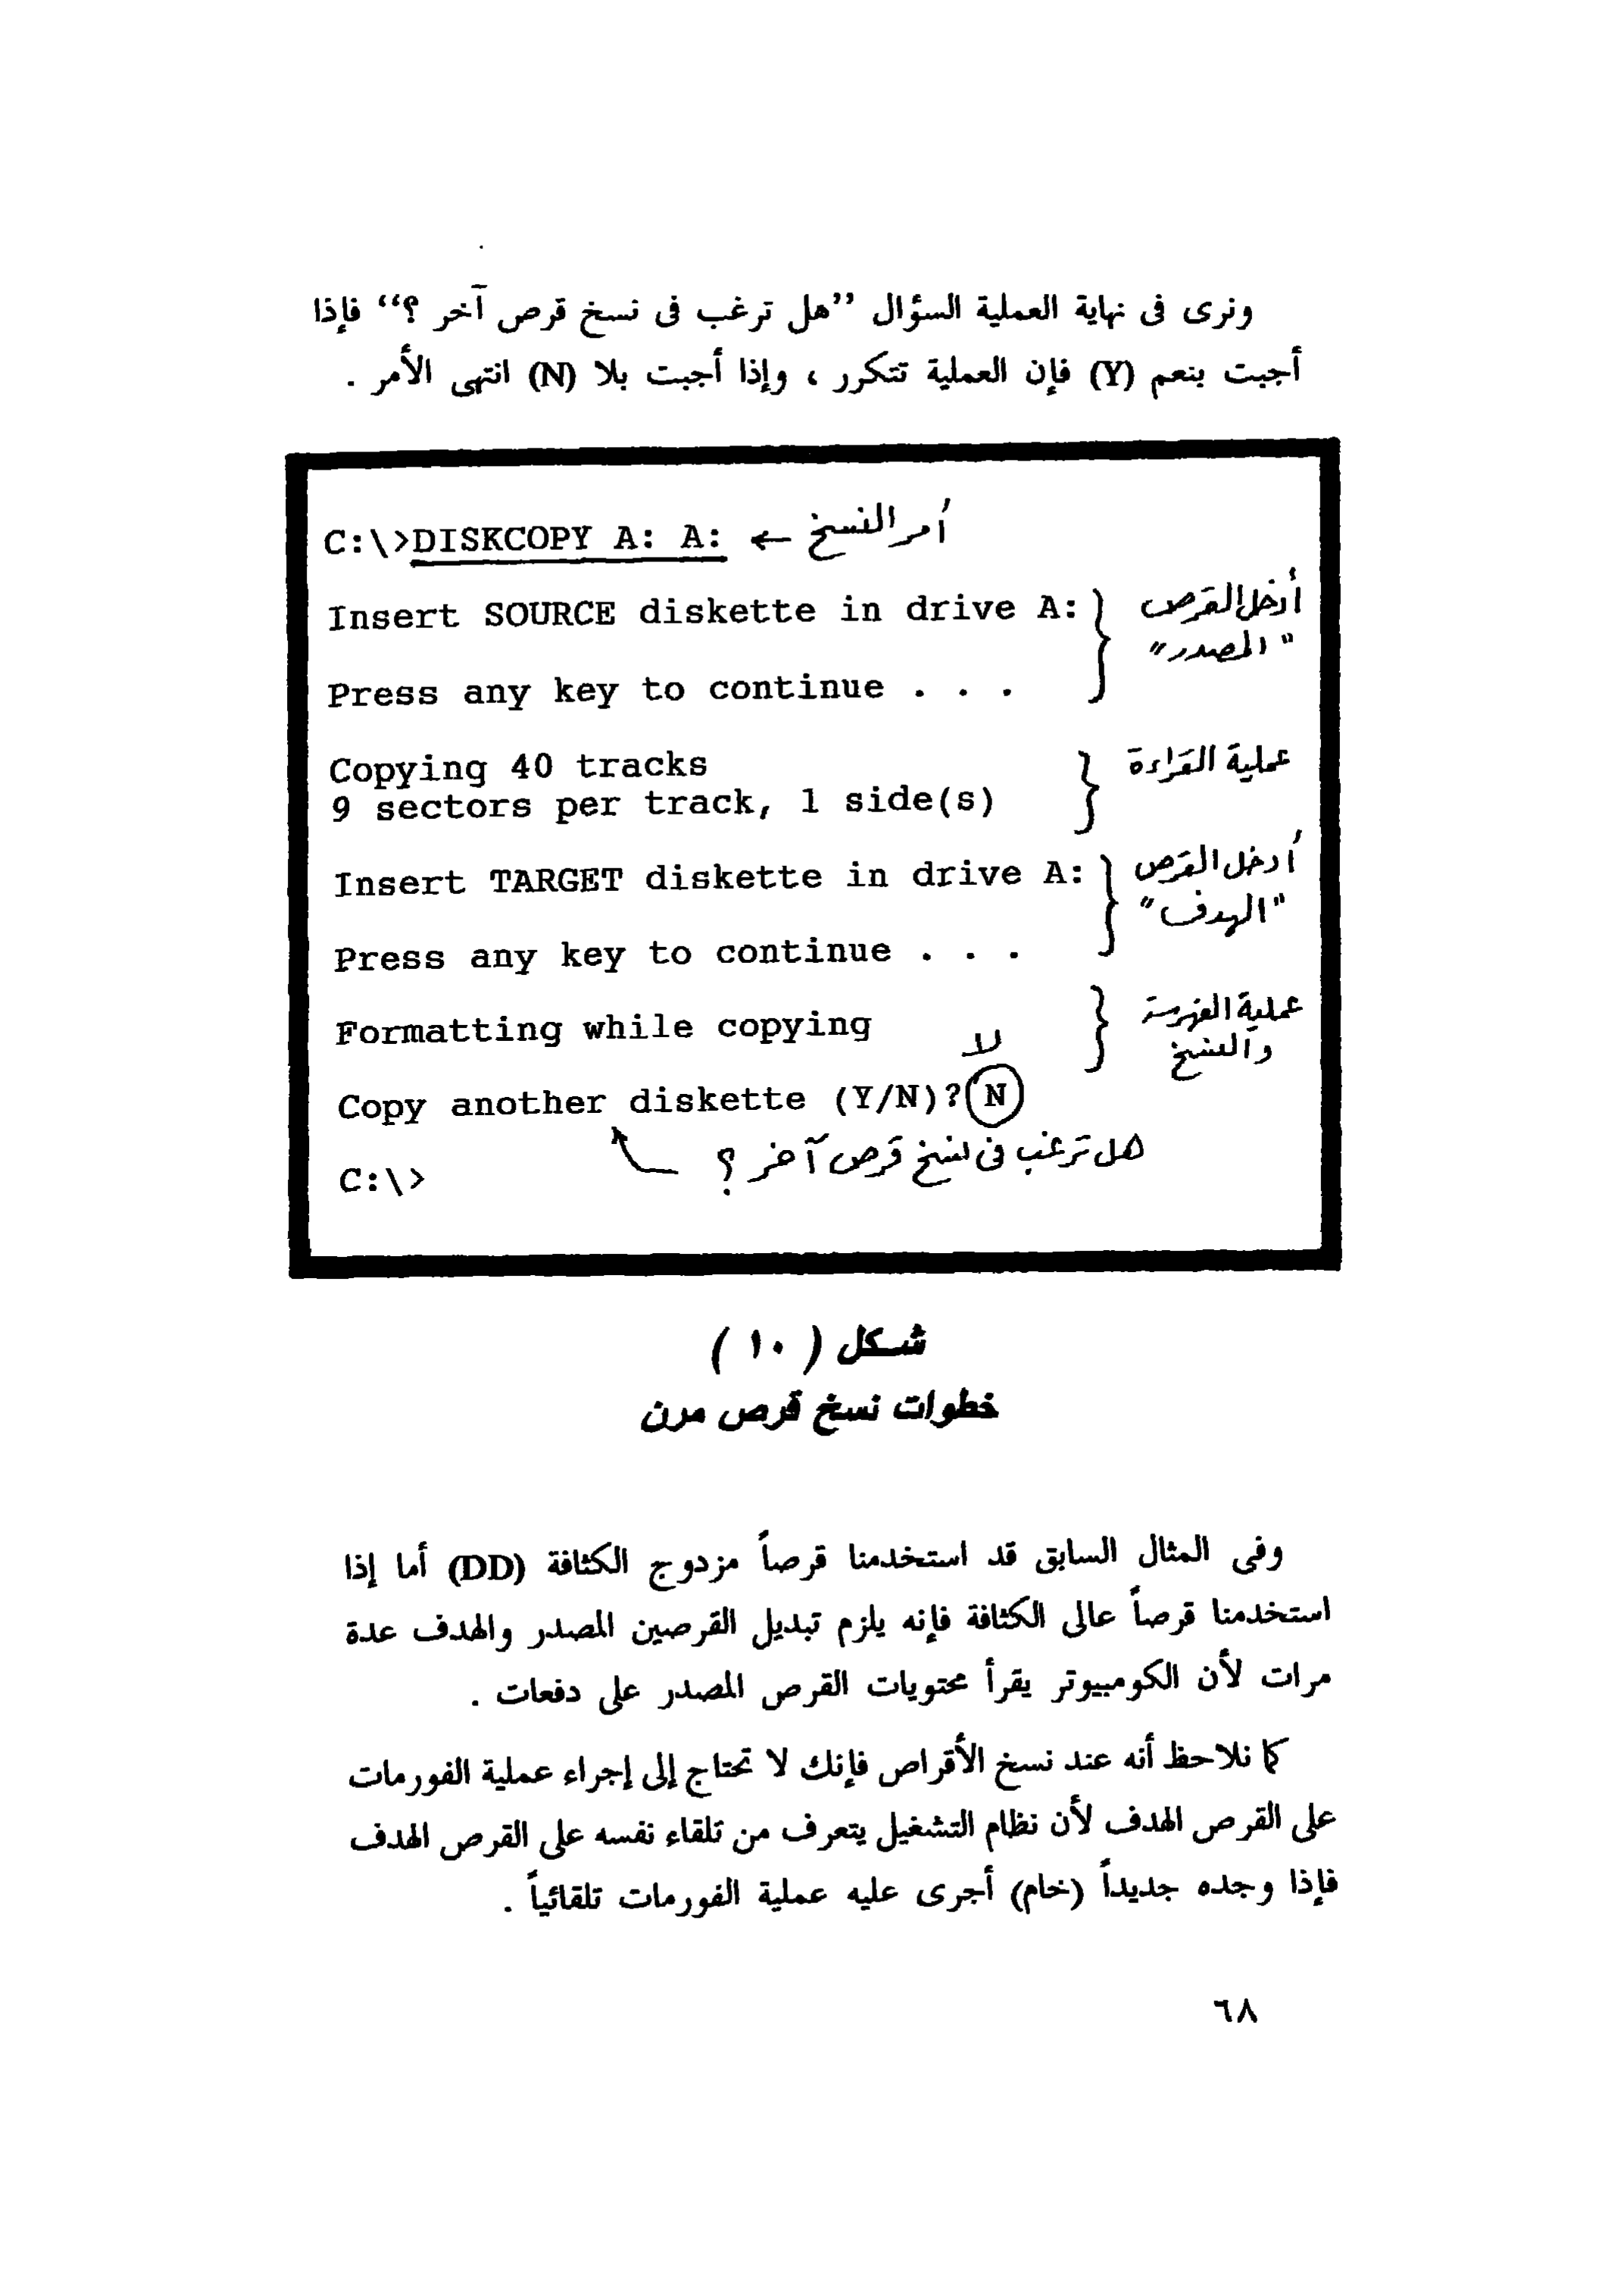 ونرى فى نهاية العملية السؤال ”هل ترغب فى نسخ قرص آخر ؟“ فإذا
أجبت بنعم (Y) فإن العملية تتكرر ، وإذا أجبت بلا (N) انتهى الأمر .
C:\>DISKCOPY A: A: ← أمر النسخ
Insert SOURCE diskette in drive A: أدخل القرص
"المصدر"
Press any key to continue . . .
Copying 40 tracks عملية القراءة
9 sectors per track, 1 side(s)
Insert TARGET diskette in drive A: أدخل القرص
"الهدف"
Press any key to continue . . .
Formatting while copying عملية الفهرسة
والنسخ
لا
Copy another diskette (Y/N)?N
هل ترغب فى نسخ قرص آخر ؟
C:\>
شكل ( ١٠ )
خطوات نسخ قرص مرن
وفى المثال السابق قد استخدمنا قرصاً مزدوج الكثافة (DD) أما إذا
استخدمنا قرصاً عالى الكثافة فإنه يلزم تبديل القرصين المصدر والهدف عدة
مرات لأن الكومبيوتر يقرأ محتويات القرص المصدر على دفعات .
كما نلاحظ أنه عند نسخ الأقراص فإنك لا تحتاج إلى إجراء عملية الفورمات
على القرص الهدف لأن نظام التشغيل يتعرف من تلقاء نفسه على القرص الهدف
فإذا وجده جديداً (خام) أجرى عليه عملية الفورمات تلقائياً .
٦٨